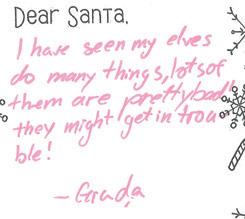 Dear Santa,
I have seen my elves
do many things, lots of
them are pretty bad!
they might get in trou
ble!